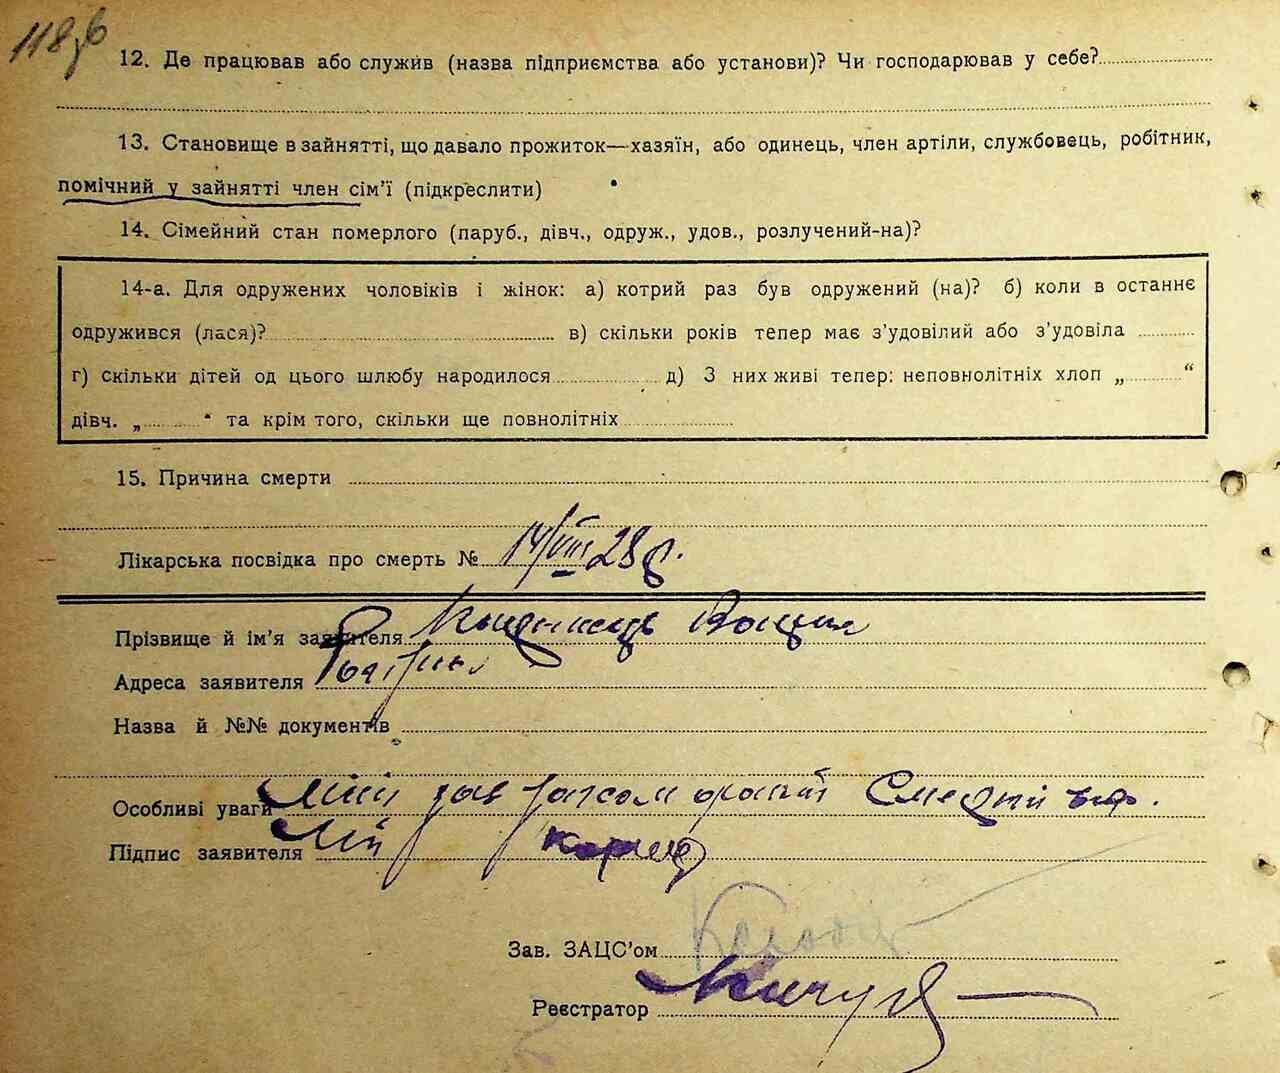 118зв
12. Де працював або служив (назва підприємства або установи)? Чи господарював у себе?
13. Становище в зайнятті, що давало прожиток—хазяїн, або одинець, член артіли, службовець, робітник,
помічний у зайнятті член сім’ї (підкреслити)
14. Сімейний стан померлого (паруб., дівч., одруж., удов., розлучений-на)?
14-а. Для одружених чоловіків і жінок: а) котрий раз був одружений (на)? б) коли в останнє
одружився (лася)? в) скільки років тепер має з’удовілий або з’удовіла
г) скільки дітей од цього шлюбу народилося д) З них живі тепер: неповнолітніх хлоп „ “
дівч. „ “ та крім того, скільки ще повнолітніх
15. Причина смерти
Лікарська посвідка про смерть № 14/VIII 28 р.
Прізвище й ім’я заявителя
Адреса заявителя
Назва й №№ документів
Особливі уваги
Підпис заявителя
Зав. ЗАЦС’ом
Реєстратор